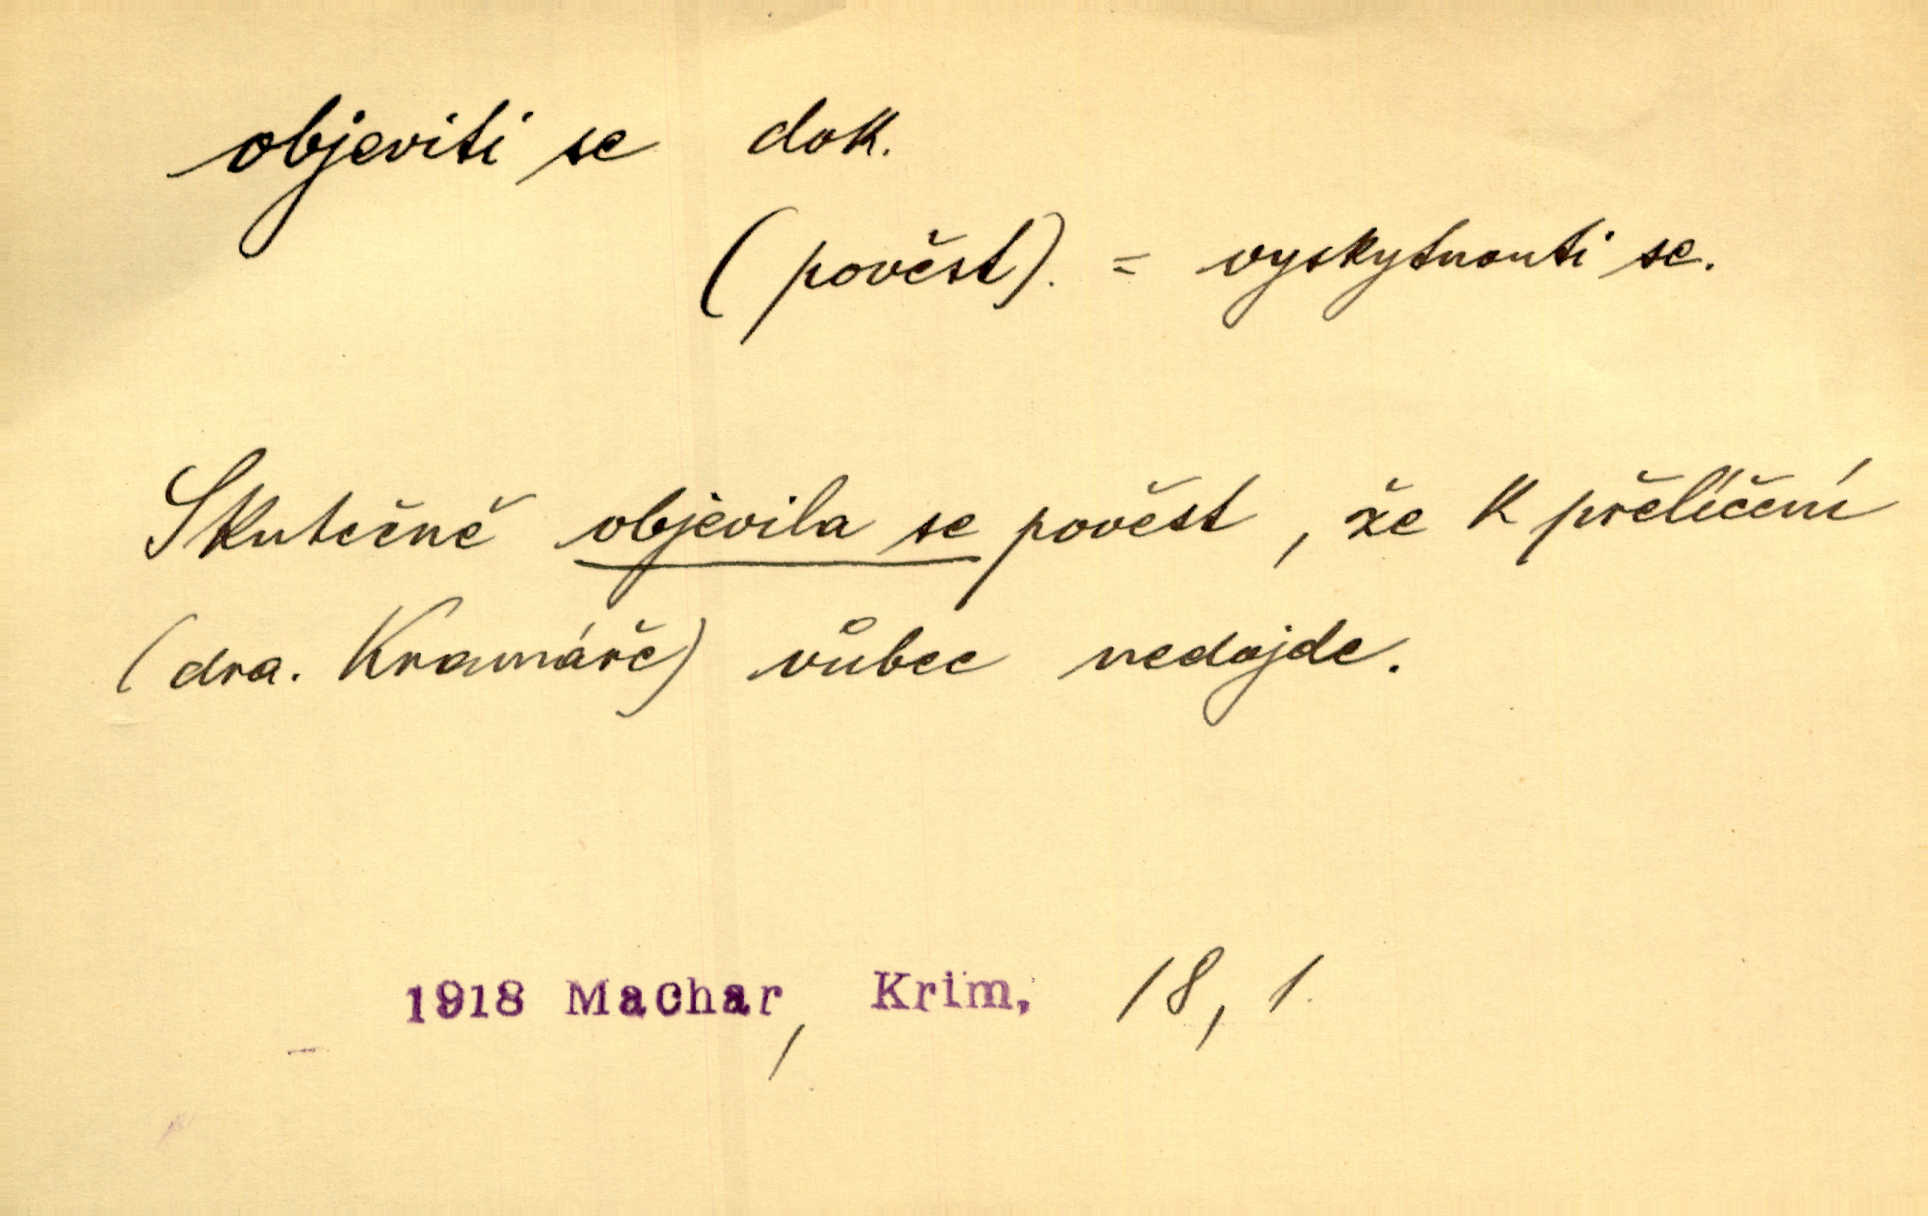 objeviti se dok.
(pověst). = vyskytnouti se.
Skutečně objevila se pověst, že k přelíčení
(dra. Kramáře) vůbec nedojde.
1918 Machar, Krim. 18, 1.